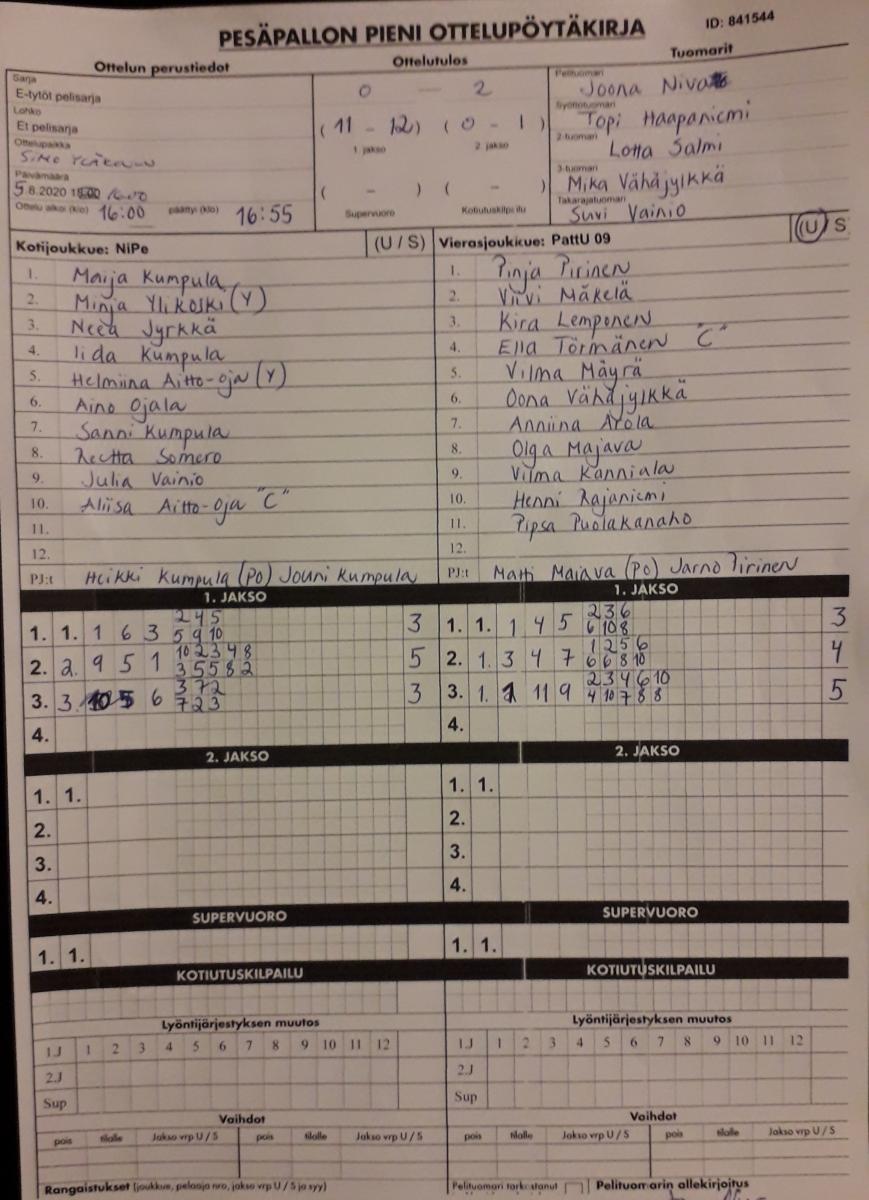 PESÄPALLON PIENI OTTELUPÖYTÄKIRJA
ID: 841544
Ottelun perustiedot
Ottelutulos
Tuomarit
Sarja
E-tytöt pelisarja
Lohko
E1 pelisarja
Ottelupaikka
Päivämäärä
5.8.2020
Ottelu alkoi (klo) 16:00 päättyi (klo) 16:55
0 - 2
(11 - 12) (0 - 1)
1. jakso 2. jakso
( - ) ( - )
Supervuoro Kotiutuskilpailu
Pelituomari
Joona
Syöttötuomari
Topi Haapaniemi
2-tuomari
Lotta Salmi
3-tuomari
Mika Vähäjylkkä
Takarajatuomari
Suvi Vainio
Kotijoukkue: NiPe (U / S)
1. Maija Kumpula
2. Minja Ylikoski (Y)
3. Neea Jyrkkä
4. Iida Kumpula
5. Helmiina Aitto-oja (Y)
6. Aino Ojala
7. Sanni Kumpula
8. Reetta Somero
9. Julia Vainio
10. Aliisa Aitto-Oja "C"
11.
12.
PJ:t Heikki Kumpula (PO) Jouni Kumpula
Vierasjoukkue: PattU 09 (U) S
1. Pinja Pirinen
2. Viivi Mäkelä
3. Kira Lemponen
4. Ella Törmänen "C"
5. Vilma Mäyrä
6. Oona Vähäjylkkä
7. Anniina Arola
8. Olga Majava
9. Vilma Kanniala
10. Henni Rajaniemi
11. Pipsa Puolakanaho
12.
PJ:t Matti Majava (PO) Jarno Pirinen
1. JAKSO
1. 1. 1 6 3 2 4 5 3
5 9 10
2. 2. 9 5 1 10 2 3 4 8 5
3 5 5 8 2
3. 3. 6 3 7 2 3
7 2 3
4.
1. JAKSO
1. 1. 1 4 5 2 3 6 3
6 10 8
2. 1. 3 4 7 1 2 5 6 4
6 6 8 10
3. 1. 11 9 2 3 4 6 10 5
4 10 7 8 8
4.
2. JAKSO
1. 1.
2.
3.
4.
2. JAKSO
1. 1.
2.
3.
4.
SUPERVUORO
1. 1.
SUPERVUORO
1. 1.
KOTIUTUSKILPAILU
KOTIUTUSKILPAILU
Lyöntijärjestyksen muutos
1J 1 2 3 4 5 6 7 8 9 10 11 12
2J
Sup
Lyöntijärjestyksen muutos
1J 1 2 3 4 5 6 7 8 9 10 11 12
2J
Sup
Vaihdot
pois tilalle Jakso vrp U / S pois tilalle Jakso vrp U / S
Vaihdot
pois tilalle Jakso vrp U / S pois tilalle Jakso vrp U / S
Rangaistukset (joukkue, pelaaja nro, jakso vrp U / S ja syy)
Pelituomari tarkastanut
Pelituomarin allekirjoitus